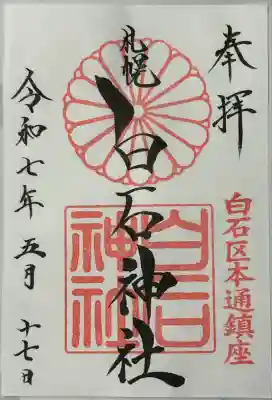 奉拝
白石区本通鎮座
札幌
白石神社
白石神社
令和七年五月十七日